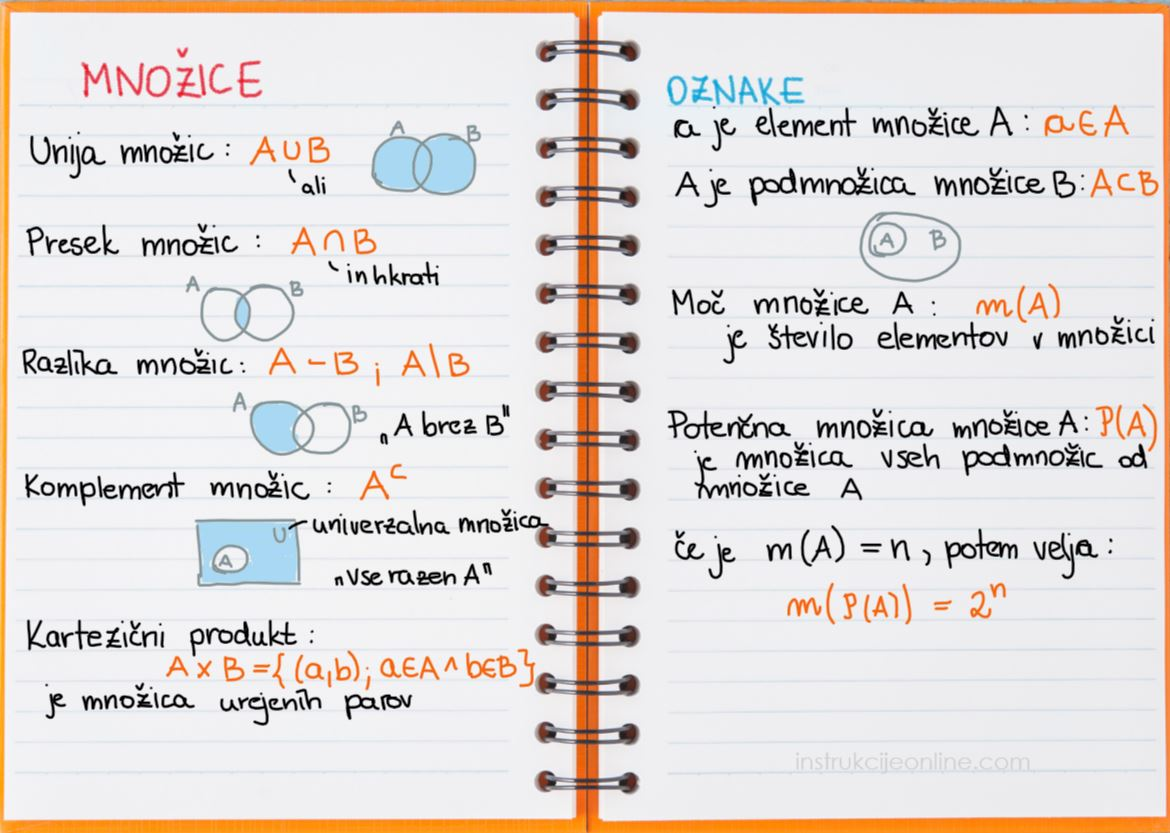 MNOŽICE
Unija množic : A ∪ B
ali
A B
Presek množic : A ∩ B
in hkrati
A B
Razlika množic : A - B ; A | B
A B
„A brez B"
Komplement množic : Aᶜ
U univerzalna množica
A
„vse razen A"
Kartezični produkt :
A × B = { (a,b) ; a∈A ∧ b∈B }
je množica urejenih parov
OZNAKE
a je element množice A : a ∈ A
A je podmnožica množice B : A ⊂ B
A B
Moč množice A : m(A)
je število elementov v množici
Potenčna množica množice A : P(A)
je množica vseh podmnožic od
množice A
če je m(A) = n , potem velja :
m(P(A)) = 2ⁿ
instrukcijeonline.com